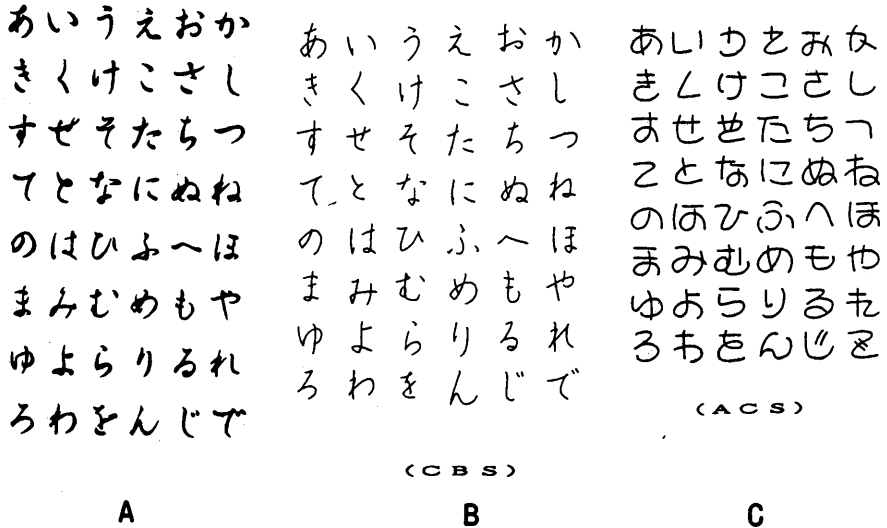 あいうえおか
きくけこさし
すせそたちつ
てとなにぬね
のはひふへほ
まみむめもや
ゆよらりるれ
ろわをんじで
A
あいうえおか
きくけこさし
すせそたちつ
てとなにぬね
のはひふへほ
まみむめもや
ゆよらりるれ
ろわをんじで
(CBS)
B
あいうえおか
きくけこさし
すせそたちつ
てとなにぬね
のはひふへほ
まみむめもや
ゆよらりるれ
ろわをんじで
(ACS)
C